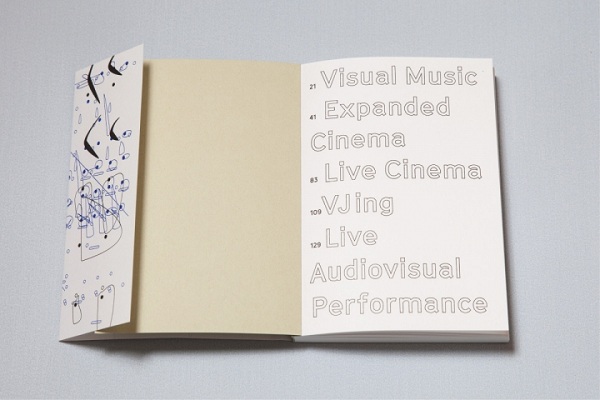 21 Visual Music
41 Expanded
Cinema
83 Live Cinema
109 VJing
129 Live
Audiovisual
Performance